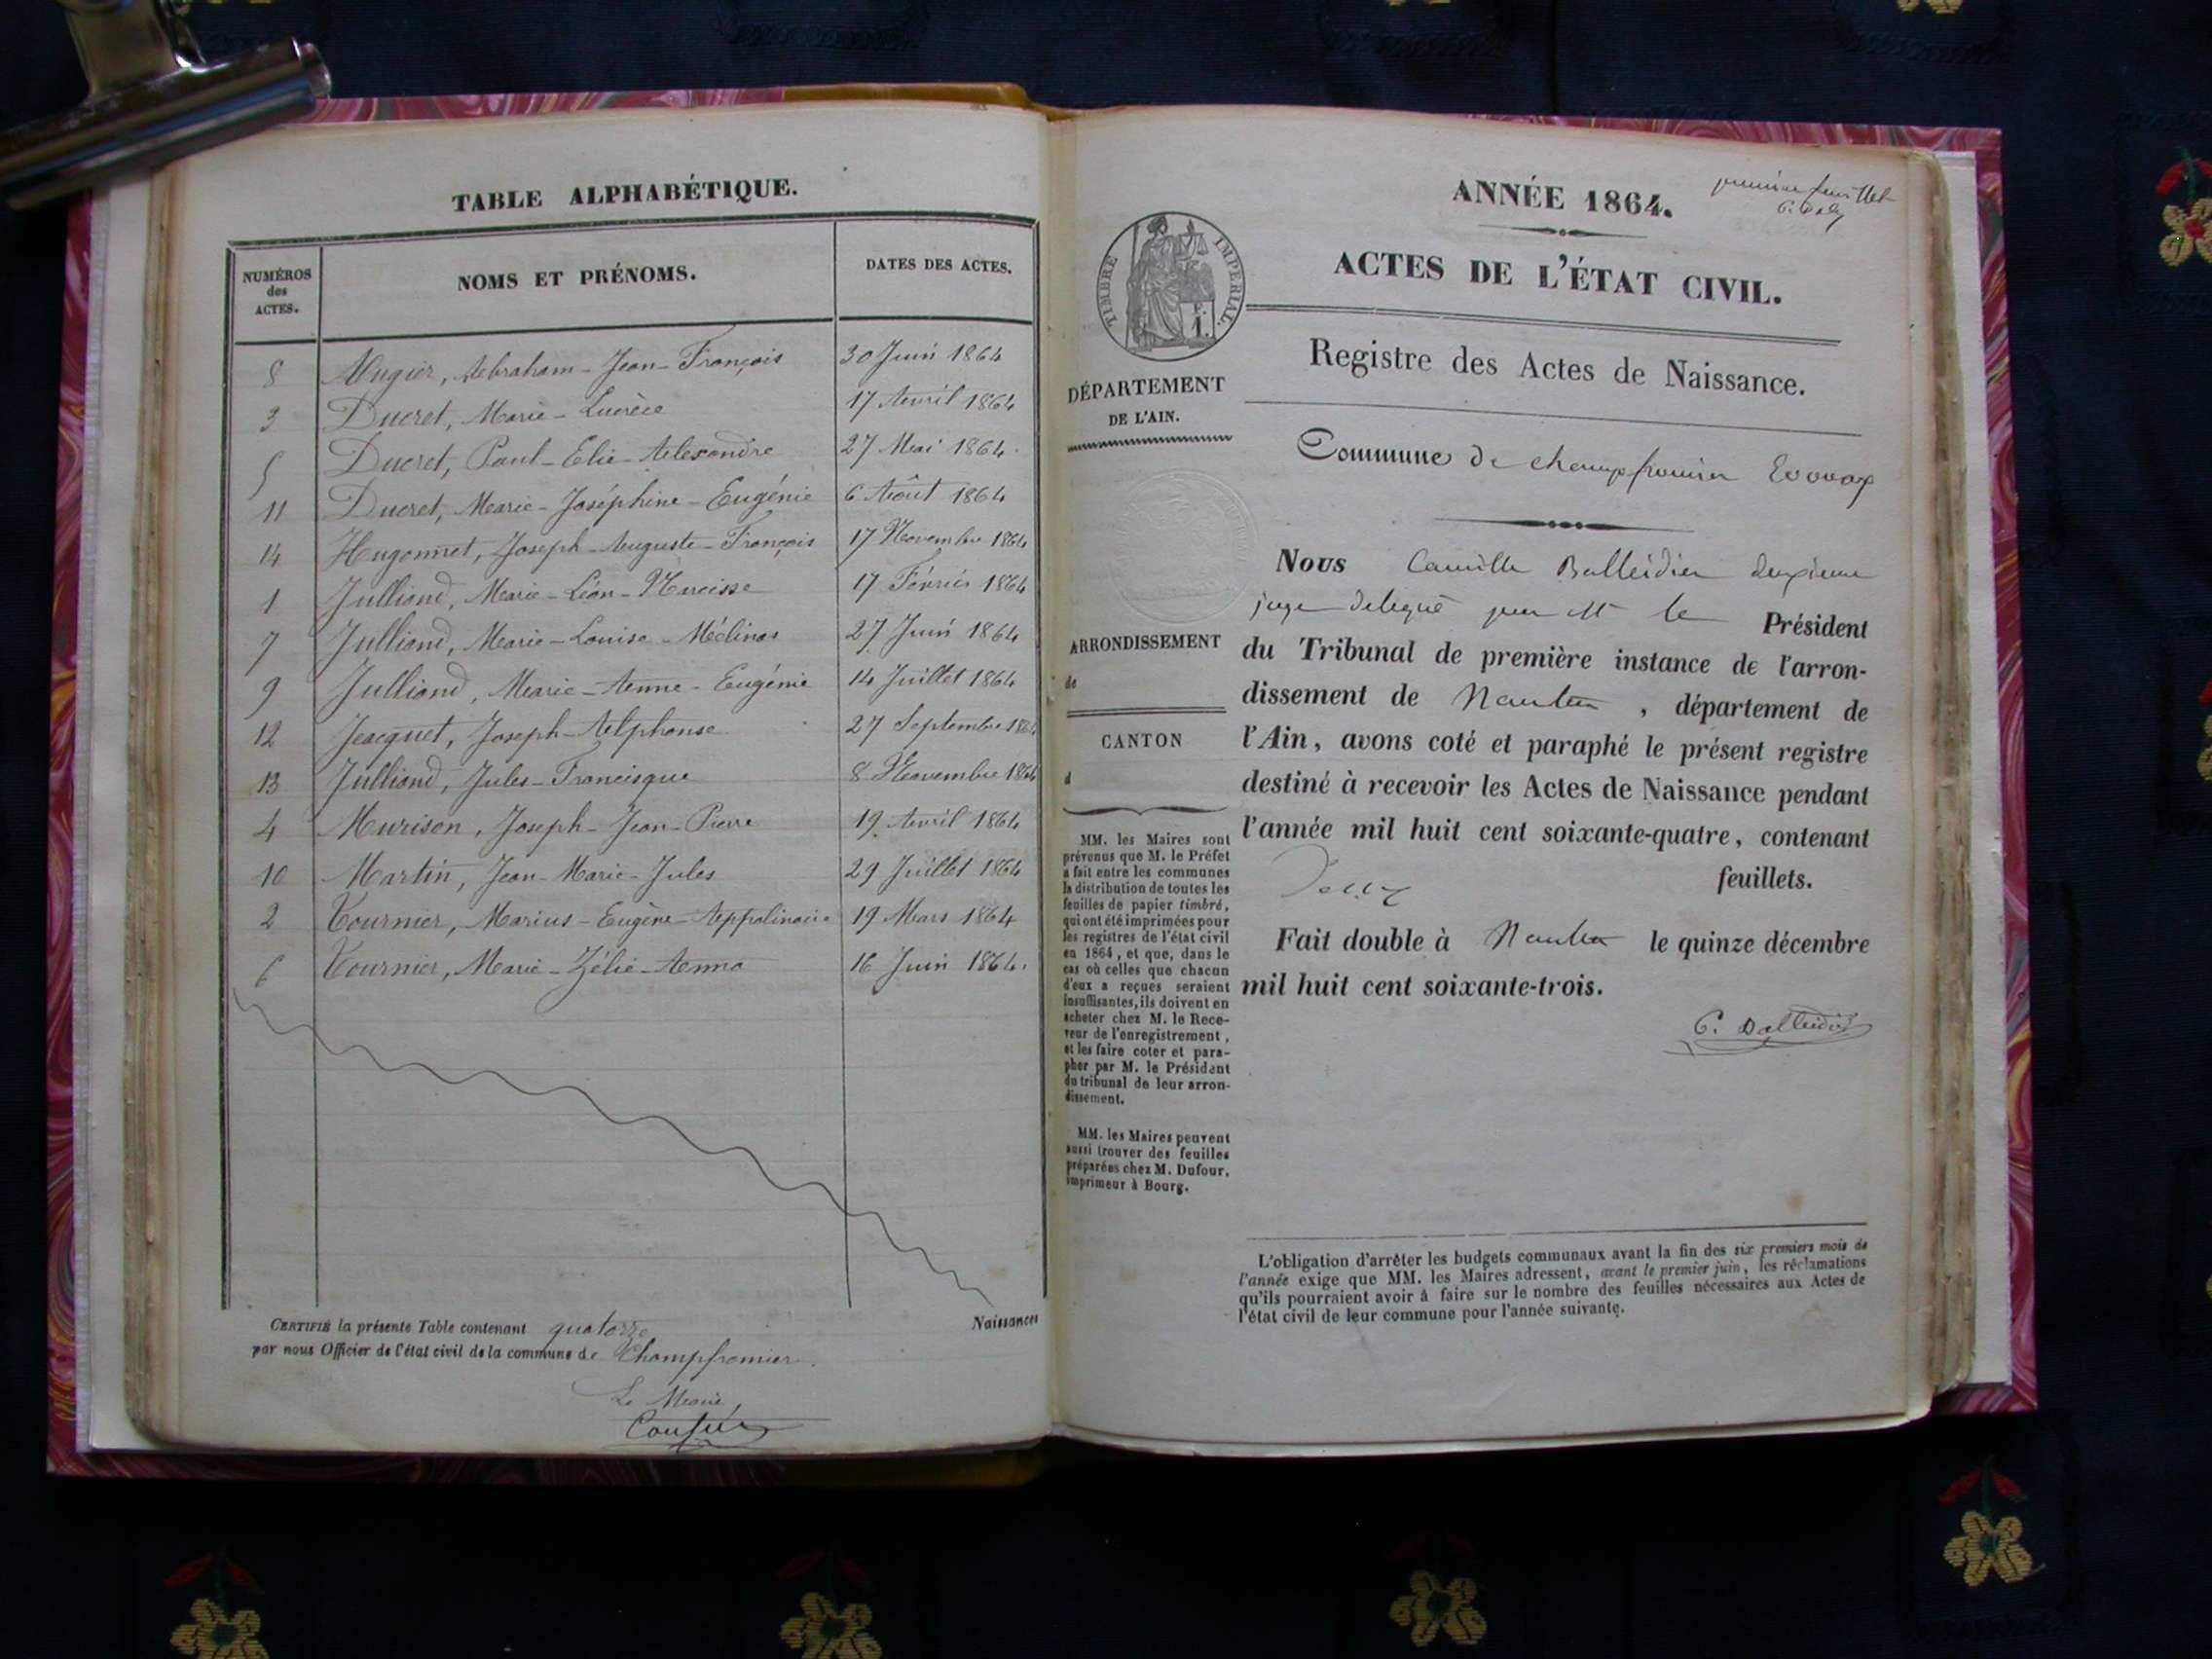 TABLE ALPHABÉTIQUE.
NUMÉROS des ACTES. NOMS ET PRÉNOMS. DATES DES ACTES.
8 Augier, Abraham-Jean-François 30 Juin 1864
3 Ducret, Marie-Lucrèce 17 Avril 1864
5 Ducret, Paul-Elie-Alexandre 27 Mai 1864
11 Ducret, Marie-Joséphine-Eugénie 6 Août 1864
14 Hugonnet, Joseph-Auguste-François 17 Novembre 1864
1 Julliand, Marie-Léon-Narcisse 17 Février 1864
7 Julliand, Marie-Louise-Mélina 27 Juin 1864
9 Julliand, Marie-Anne-Eugénie 14 Juillet 1864
12 Jacquet, Joseph-Alphonse 27 Septembre 1864
13 Julliand, Jules-Francisque 8 Novembre 1864
4 Murison, Joseph-Jean-Pierre 19 Avril 1864
10 Martin, Jean-Marie-Jules 29 Juillet 1864
2 Tournier, Marius-Eugène-Appolinaire 19 Mars 1864
6 Tournier, Marie-Zélie-Anna 16 Juin 1864.
CERTIFIÉ la présente Table contenant quatorze Naissances
par nous Officier de l'état civil de la commune de Champfromier.
Le Maire,
ANNÉE 1864.
premier feuillet
ACTES DE L'ÉTAT CIVIL.
TIMBRE IMPÉRIAL.
Registre des Actes de Naissance.
DÉPARTEMENT
DE L'AIN.
Commune de champfromier
Nous Camille Balleidier deuxieme
juge delegué par M le Président
ARRONDISSEMENT
de
du Tribunal de première instance de l'arron-
dissement de Nantua, département de
CANTON
d
l'Ain, avons coté et paraphé le présent registre
destiné à recevoir les Actes de Naissance pendant
l'année mil huit cent soixante-quatre, contenant
feuillets.
Fait double à Nantua le quinze décembre
mil huit cent soixante-trois.
C. Balleidier
MM. les Maires sont
prévenus que M. le Préfet
a fait entre les communes
la distribution de toutes les
feuilles de papier timbré,
qui ont été imprimées pour
les registres de l'état civil
en 1864, et que, dans le
cas où celles que chacun
d'eux a reçues seraient
insuffisantes, ils doivent en
acheter chez M. le Rece-
veur de l'enregistrement,
et les faire coter et para-
pher par M. le Président
du tribunal de leur arron-
dissement.
MM. les Maires peuvent
aussi trouver des feuilles
préparées chez M. Dufour,
imprimeur à Bourg.
L'obligation d'arrêter les budgets communaux avant la fin des six premiers mois de
l'année exige que MM. les Maires adressent, avant le premier juin, les réclamations
qu'ils pourraient avoir à faire sur le nombre des feuilles nécessaires aux Actes de
l'état civil de leur commune pour l'année suivante.